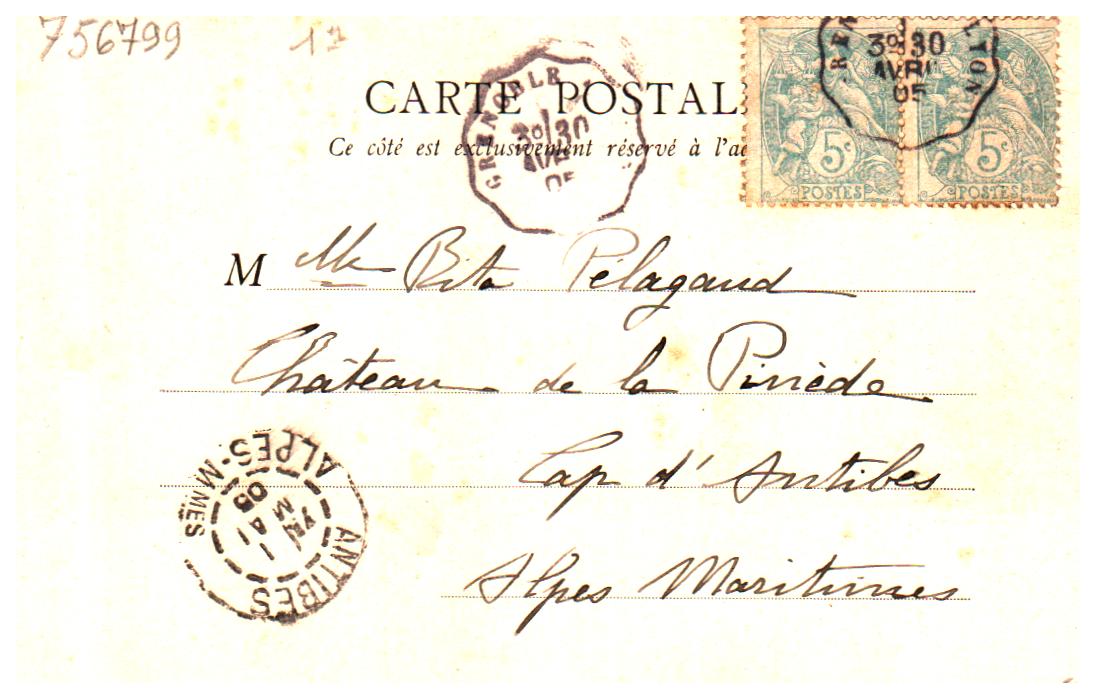 756799 1F
CARTE POSTAL
Ce côté est exclusivement réservé à l'a
GRENOBLE
30 AVRIL 05
LYON
3º 30
AVRIL
05
5c 5c
POSTES POSTES
M Mlle Rita Pélagaud
Château de la Pinède
Cap d'Antibes
Alpes Maritimes
ANTIBES
ALPES-MMES
1
MAI
05